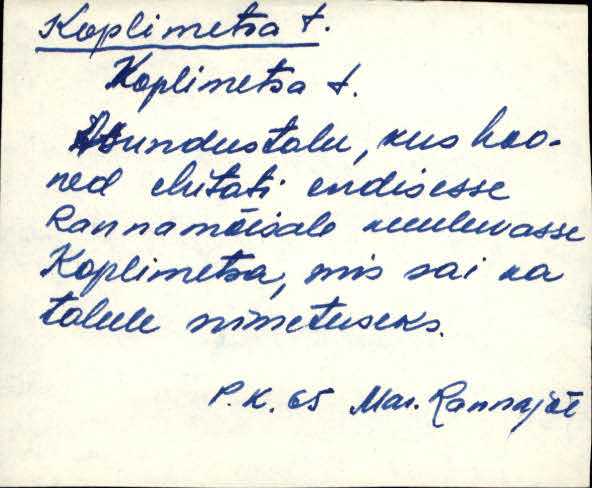 Koplimetsa t.
Koplimetsa t.
Asundustalu, kus hoo-
ned ehitati endisesse
Rannamõisale kuuluvasse
Koplimetsa, mis sai ka
talule nimetuseks.
P.K. 65 Mar. Rannajõe